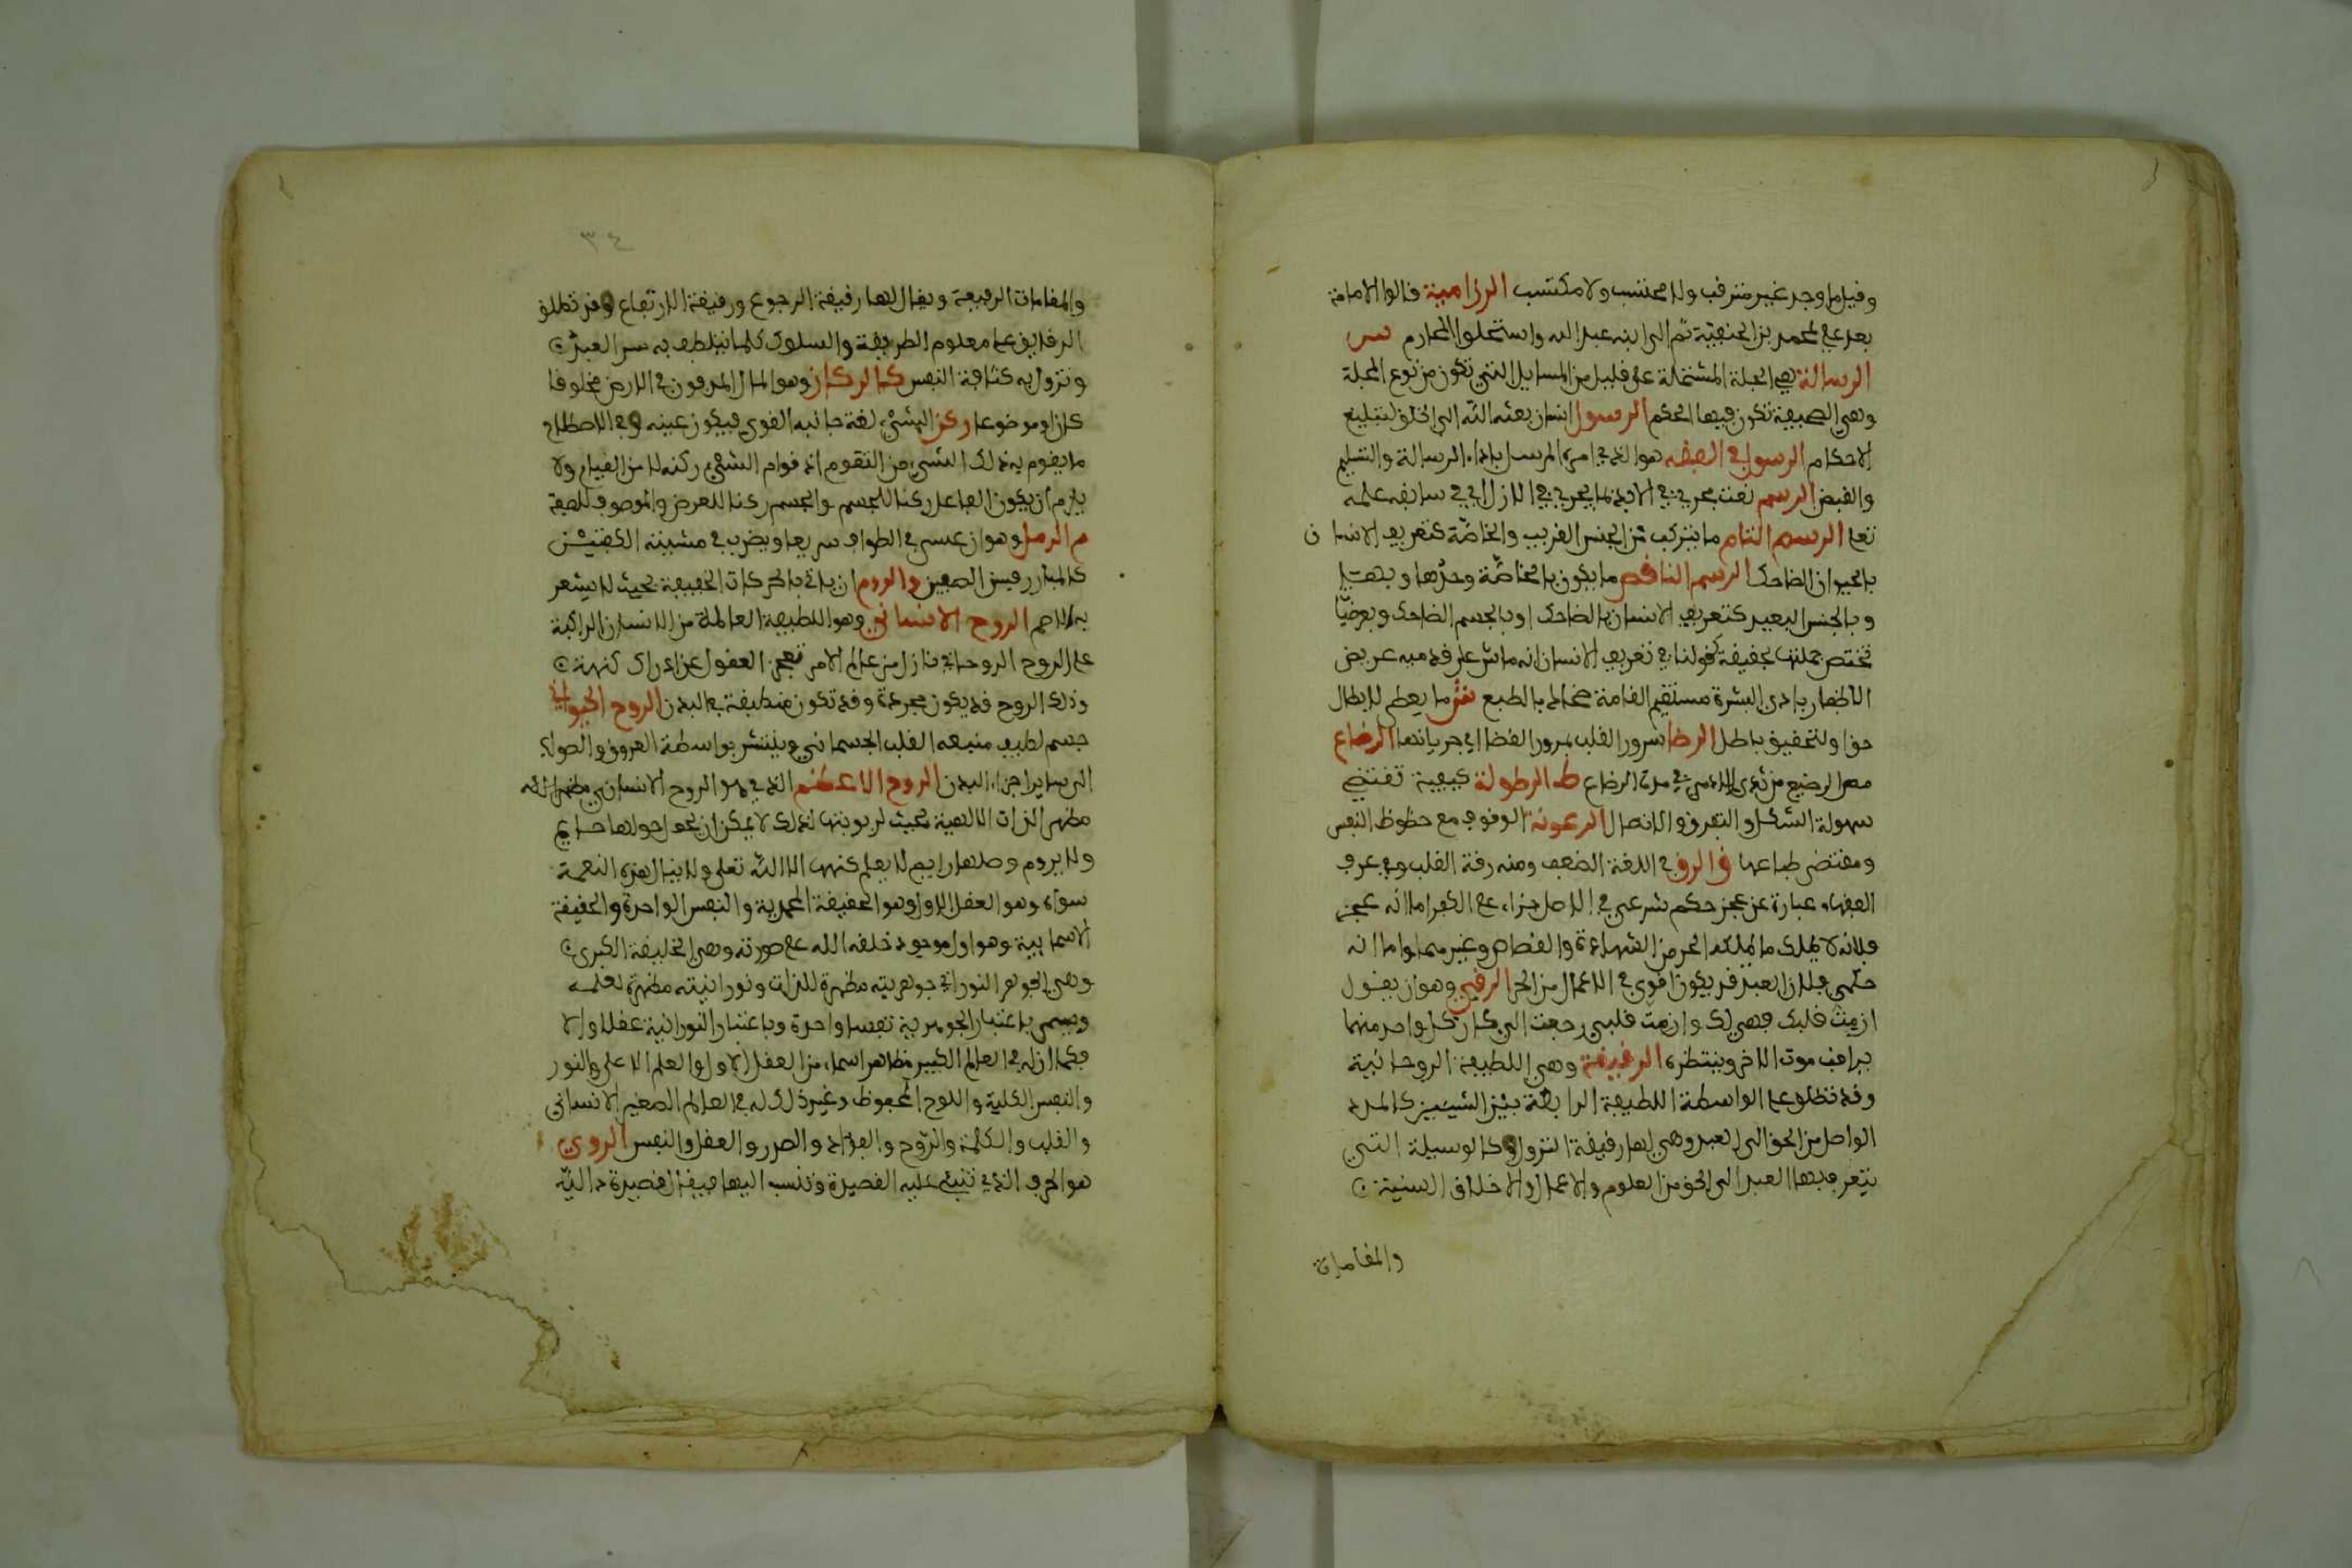 وقيل ما وجد غير مترقب ولا محتسب ولا مكتسب الرزامية قالوا الامامة
بعد علي لمحمد بن الحنفية ثم الى ابنه عبد الله واستحلوا المحارم س
الرسالة هي المجلة المشتملة على قليل من المسايل التي تكون من نوع المجلة
وهي الصحيفة تكون فيها الحكم الرسول انسان بعثه الله الى الخلق لتبليغ
الاحكام الرسول في الفقه هو الذي امره المرسل باداء الرسالة والتسليم
والقبض الرسم نعت يجري في الابد بما يجري في الازل اي في سابقه علمه
تعلى الرسم التام ما يتركب من الجنس القريب والخاصة كتعريف الانسان
بالحيوان الضاحك الرسم الناقص ما يكون بالخاصة وحدها وبها
وبالجنس البعيد كتعريف الانسان بالضاحك او بالجسم الضاحك وبعرضيا
تختص جملتها بحقيقة كقولنا في تعريف الانسان انه ماش على قدميه عريض
الاظفار بادي البشرة مستقيم القامة ضحاك بالطبع ش ما يعطى لابطال
حق او لتحقيق باطل الرضا سرور القلب بمرور القضا اي جريانها الرضاع
مص الرضيع من ثدي الادمي في مدة الرضاع ط الرطوبة كيفية تقتضي
سهولة الشكل والتفرق والاتصال الرعونة الوقوف مع حظوظ النفس
ومقتضى طباعها ق الرق في اللغة الضعف ومنه رقة القلب وفي عرف
الفقهاء عبارة عن عجز حكم شرعي في الاصل جزاء على الكفر اما انه عجز
فلانه لا يملك ما يملكه الحر من الشهادة والقضاء وغيرهما واما انه
حكمي فلان العبد قد يكون اقوى في الاعمال من الحر الرقبى وهو ان يقول
ان مت قبلك فهي لك وان مت قبلي رجعت الي كان كل واحد منهما
يراقب موت الاخر وينتظره الرقيقة وهي اللطيفة الروحانية
وقد تطلق على الواسطة اللطيفة الرابطة بين الشيئين كالمدد
الواصل من الحق الى العبد وهي لها رقيقة النزول وكالوسيلة التي
يتقرب بها العبد الى الحق من العلوم والاعمال والاخلاق السنية
والمقامات
٣٤
والمقامات الرفيعة ويقال لها رقيقة الرجوع ورقيقة الارتقاع وقد تطلق
الرقايق على معلوم الطريقة والسلوك كلما يتلطف به سر العبد
وتزول به كثافة النفس ك الركاز وهو المال المدفون في الارض مخلوقا
كان او موضوعا ركن الشيء لغة جانبه القوي فيكون عينه وفي الاصطلاح
ما يقوم به ذلك الشيء من التقوم اذ قوام الشيء ركنه لا من القيام ولا
يلزم ان يكون الفاعل ركنا للجسم والجسم ركنا للعرض والموصوف للصفة
م الرمل وهو ان يمشي في الطواف سريعا ويضرب في مشيته الكتفين
كالمبارز بين الصفين و الروم ان ياتي بالحركات الخفيفة بحيث لا يشعر
به الاصم الروح الانساني وهو اللطيفة العالمة من الانسان الراكبة
على الروح الروحاني نازل من عالم الامر تعجز العقول عن ادراك كنهه
وذلك الروح قد يكون مجردة وقد تكون منطبقة في البدن الروح الحيواني
جسم لطيف منبعه القلب الجسماني وينتشر بواسطة العروق والضوارب
الى ساير اجزاء البدن الروح الاعظم الذي هو الروح الانساني مظهر الله
مظهر الذات الالهية بحيث لربوبيتها لذلك لا يمكن ان يحوم حولها حايم
ولا يروم وصلها رايم لا يعلم كنهها الا الله تعلى ولا ينال هذه النعمة
سواه وهو العقل الاول وهو الحقيقة المحمدية والنفس الواحدة والحقيقة
الاسمايية وهو اول موجود خلقه الله على صورته وهي الخليفة الكبرى
وهي الجوهر النوراني جوهريته مظهرة للذات ونورانيته مظهرة لعلمه
ويسمى باعتبار الجوهرية نفسا واحدة وباعتبار النورانية عقلا اولا
فكما ان له في العالم الكبير مظاهر اسماء من العقل الاول والعلم الاعلى والنور
والنفس الكلية واللوح المحفوظ وغير ذلك له في العالم الصغير الانساني
والقلب والكلمة والروح والفؤاد والصدر والعقل والنفس الروي
هو الحرف الذي تنبني عليه القصيدة وتنسب اليها فيقال قصيدة دالية